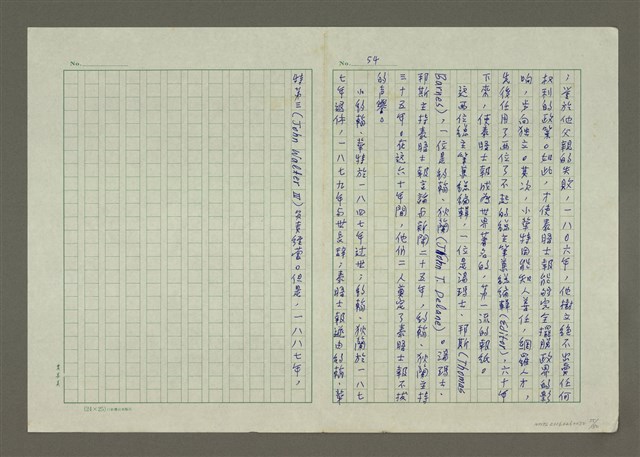 No. 54
；鑒於他父親的失敗，一八〇六年，他樹立絕不出賣任何
权利的政策。如此，才使泰晤士報能夠完全擺脫政界的影
响，步向独立。其次，小華特因能知人善任，網羅人才，
先後任用了兩位了不起的總主筆兼總編輯(Editor)，六十年
下來，使泰晤士報成為世界著名的，第一流的報紙。
這兩位總主筆兼總編輯，一位是湯瑪士．邦斯(Thomas
Barnes)，一位是約翰．狄蘭(John T. Delane)。湯瑪士．
邦斯主持泰晤士報言論与新聞二十五年，約翰．狄蘭主持
三十五年。在這六十年間，他們二人奠定了泰晤士報不拔
的声譽。
小約翰．華特於一八四七年过世；約翰．狄蘭於一八七
七年退休，一八七九年与世長辭；泰晤士報遂由約翰．華
No.
特第三(John Walter Ⅲ)負責經營。但是，一八八七年，
(24×25)